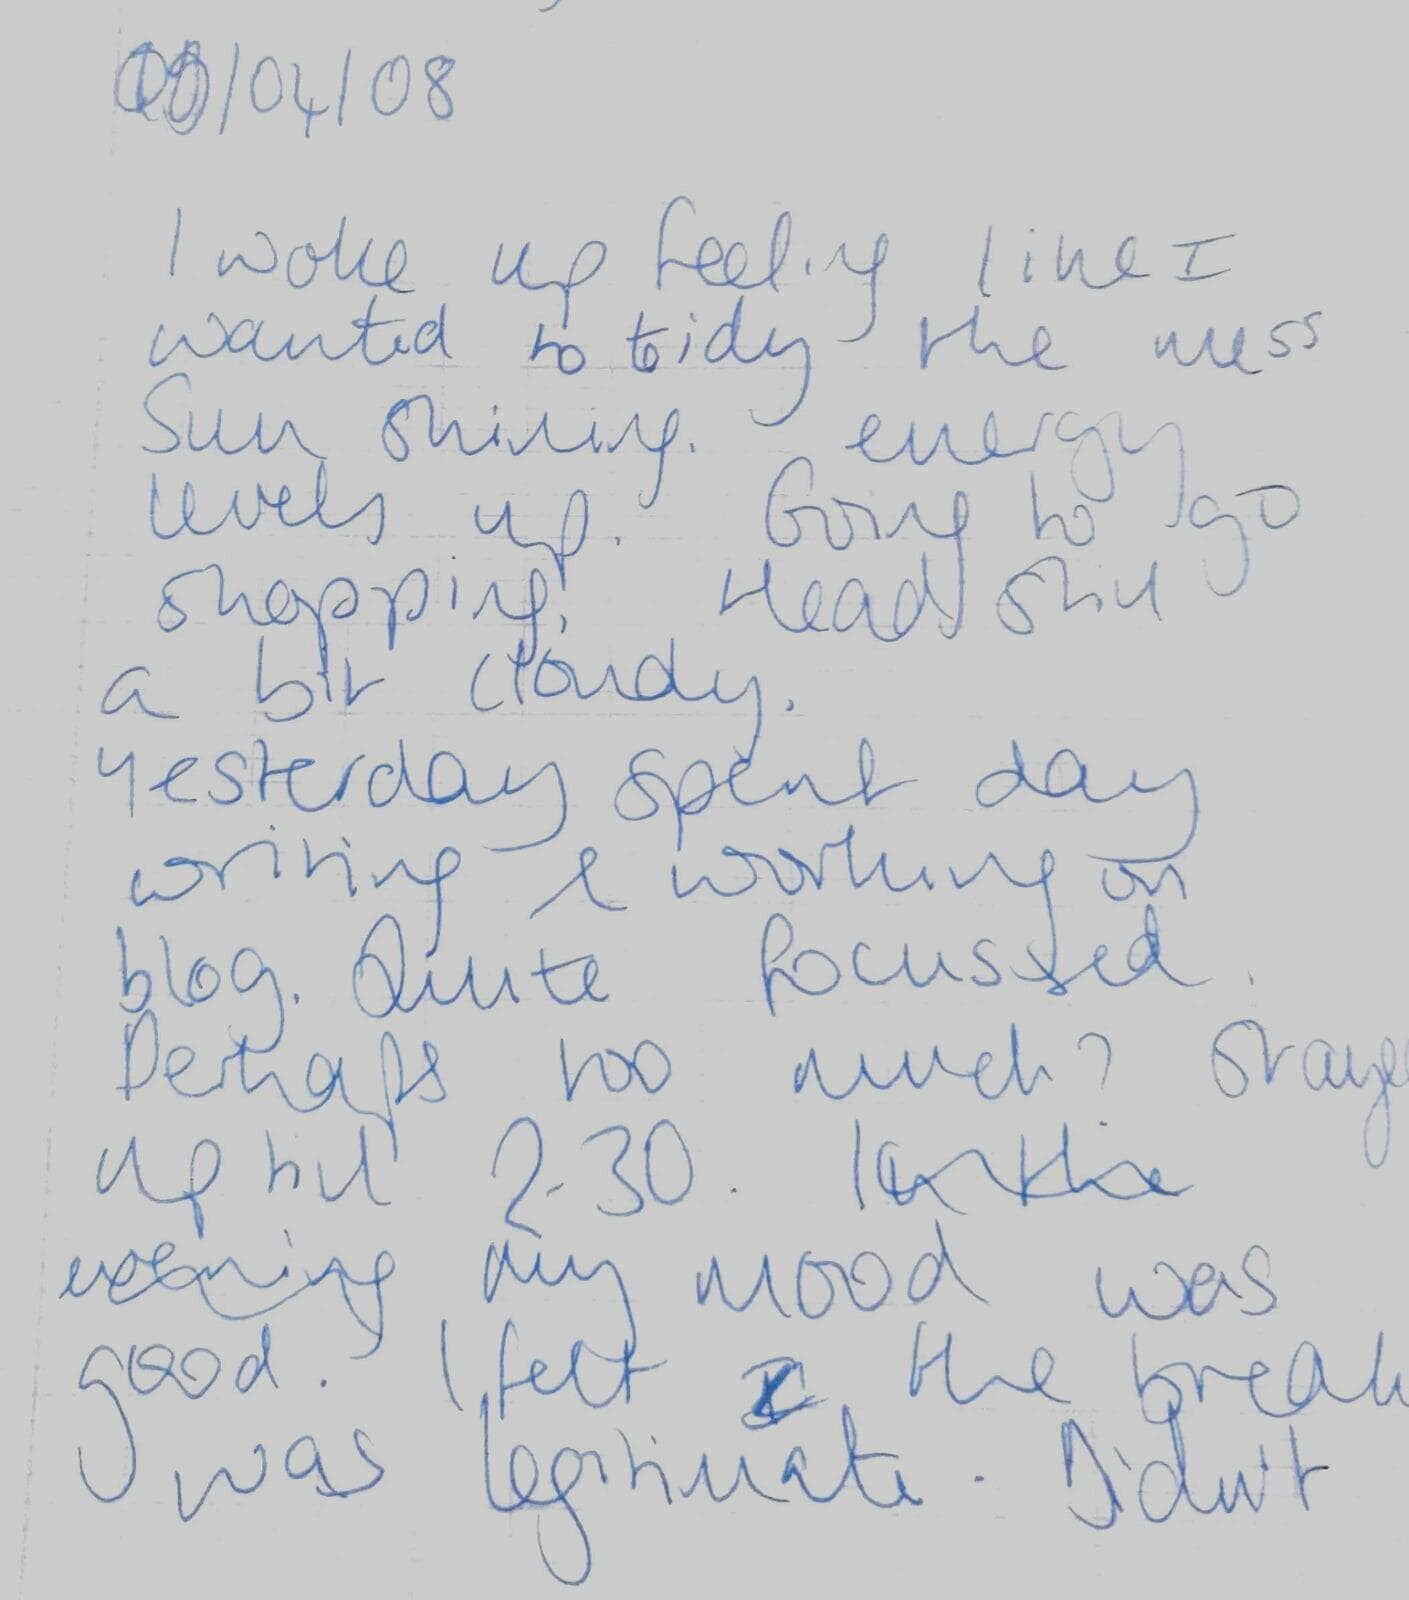 /04/08
I woke up feeling like I
wanted to tidy the mess
Sun shining. energy
levels up. Going to go
shopping. Head still
a bit cloudy.
Yesterday spent day
writing & working on
blog. Quite focussed.
Perhaps too much? Stayed
up till 2.30. In the
evening my mood was
good. I felt the break
was legitimate. Didn't